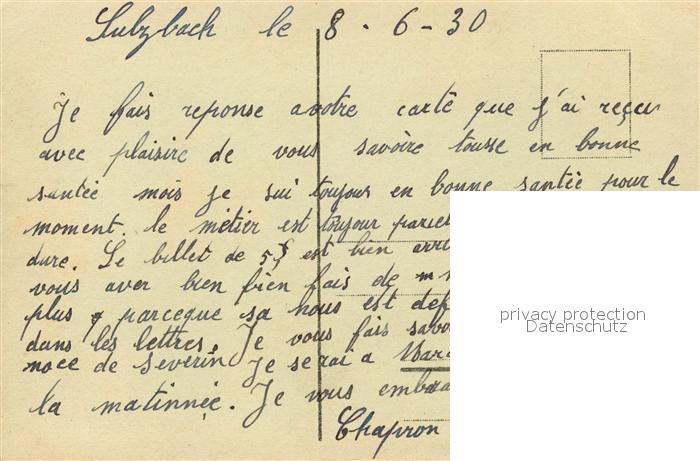 Sulzbach le 8-6-30
Je fais reponse avotre carte que j'ai reçu
avec plaisire de vous savoire tousse en bonne
santée mois je sui toujour en bonne santée pour le
moment. le métier est toujour
dure. Le billet de 5f est bien
vous aver bien fais de
plus parceque sa nous est
dans les lettres. Je vous fais
noce de Severin Je serai a
la matinnée. Je vous
Chapron
privacy protection
Datenschutz